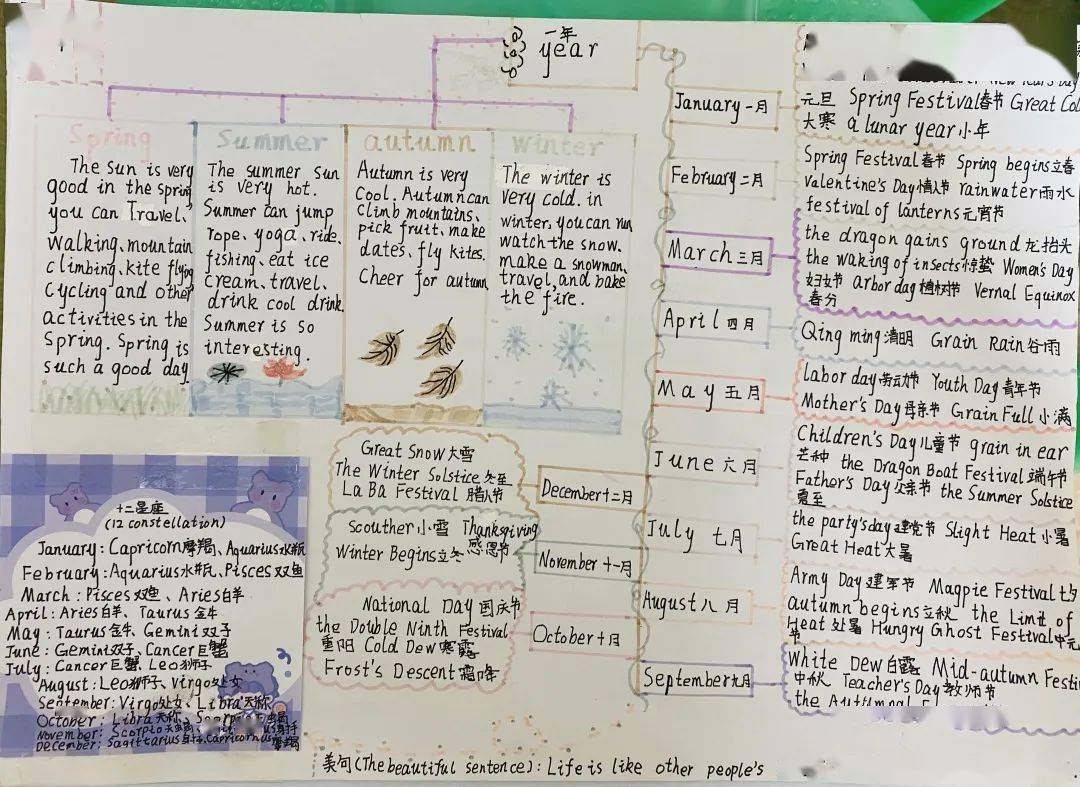 一年
year
Spring
The sun is very
good in the spring
you can Travel、
walking、mountain
climbing、kite flying
Cycling and other
activities in the
Spring. Spring is
such a good day
Summer
The summer sun
is very hot.
Summer can jump
rope、yoga、ride、
fishing、eat ice
cream、travel、
drink cool drink.
Summer is so
interesting.
autumn
Autumn is very
Cool. Autumn can
climb mountains、
pick fruit、make
dates、fly kites.
Cheer for autumn
winter
The winter is
very cold. in
winter, you can run
watch the snow.
make a snowman、
travel, and bake
the fire.
January 一月
元旦 Spring Festival春节 Great Col
大寒 a lunar year小年
February 二月
Spring Festival春节 Spring begins立春
Valentine's Day情人节 rainwater雨水
festival of lanterns元宵节
March 三月
the dragon gains ground龙抬头
the waking of insects惊蛰 Women's Day
妇女节 arbor day植树节 Vernal Equinox
春分
April 四月
Qing ming清明 Grain Rain谷雨
May 五月
Labor day劳动节 Youth Day青年节
Mother's Day母亲节 Grain Full小满
June 六月
Children's Day儿童节 grain in ear
芒种 the Dragon Boat Festival 端午节
Father's Day父亲节 the Summer Solstice
夏至
July 七月
the party's day建党节 Slight Heat小暑
Great Heat大暑
August 八月
Army Day建军节 Magpie Festival七夕
autumn begins立秋 the Limit of
Heat处暑 Hungry Ghost Festival中元
节
September 九月
White Dew白露 Mid-autumn Festi
中秋 Teacher's Day教师节
the Autumnal
October 十月
National Day国庆节
the Double Ninth Festival
重阳 Cold Dew寒露
Frost's Descent霜降
November 十一月
Scouther小雪 Thanksgiving
感恩节
Winter Begins立冬
December 十二月
Great Snow大雪
The Winter Solstice冬至
La Ba Festival 腊八节
十二星座
(12 constellation)
January: Capricorn摩羯、Aquarius水瓶
February: Aquarius水瓶、Pisces双鱼
March: Pisces双鱼、Aries白羊
April: Aries白羊、Taurus金牛
May: Taurus金牛、Gemini双子
June: Gemini双子、Cancer巨蟹
July: Cancer巨蟹、Leo狮子
August: Leo狮子、Virgo处女
September: Virgo处女、Libra天称
October: Libra天称、
November: Scorpio天蝎、
December: Sagittarius射手、Capricornus摩羯
美句(The beautiful sentence): Life is like other people's